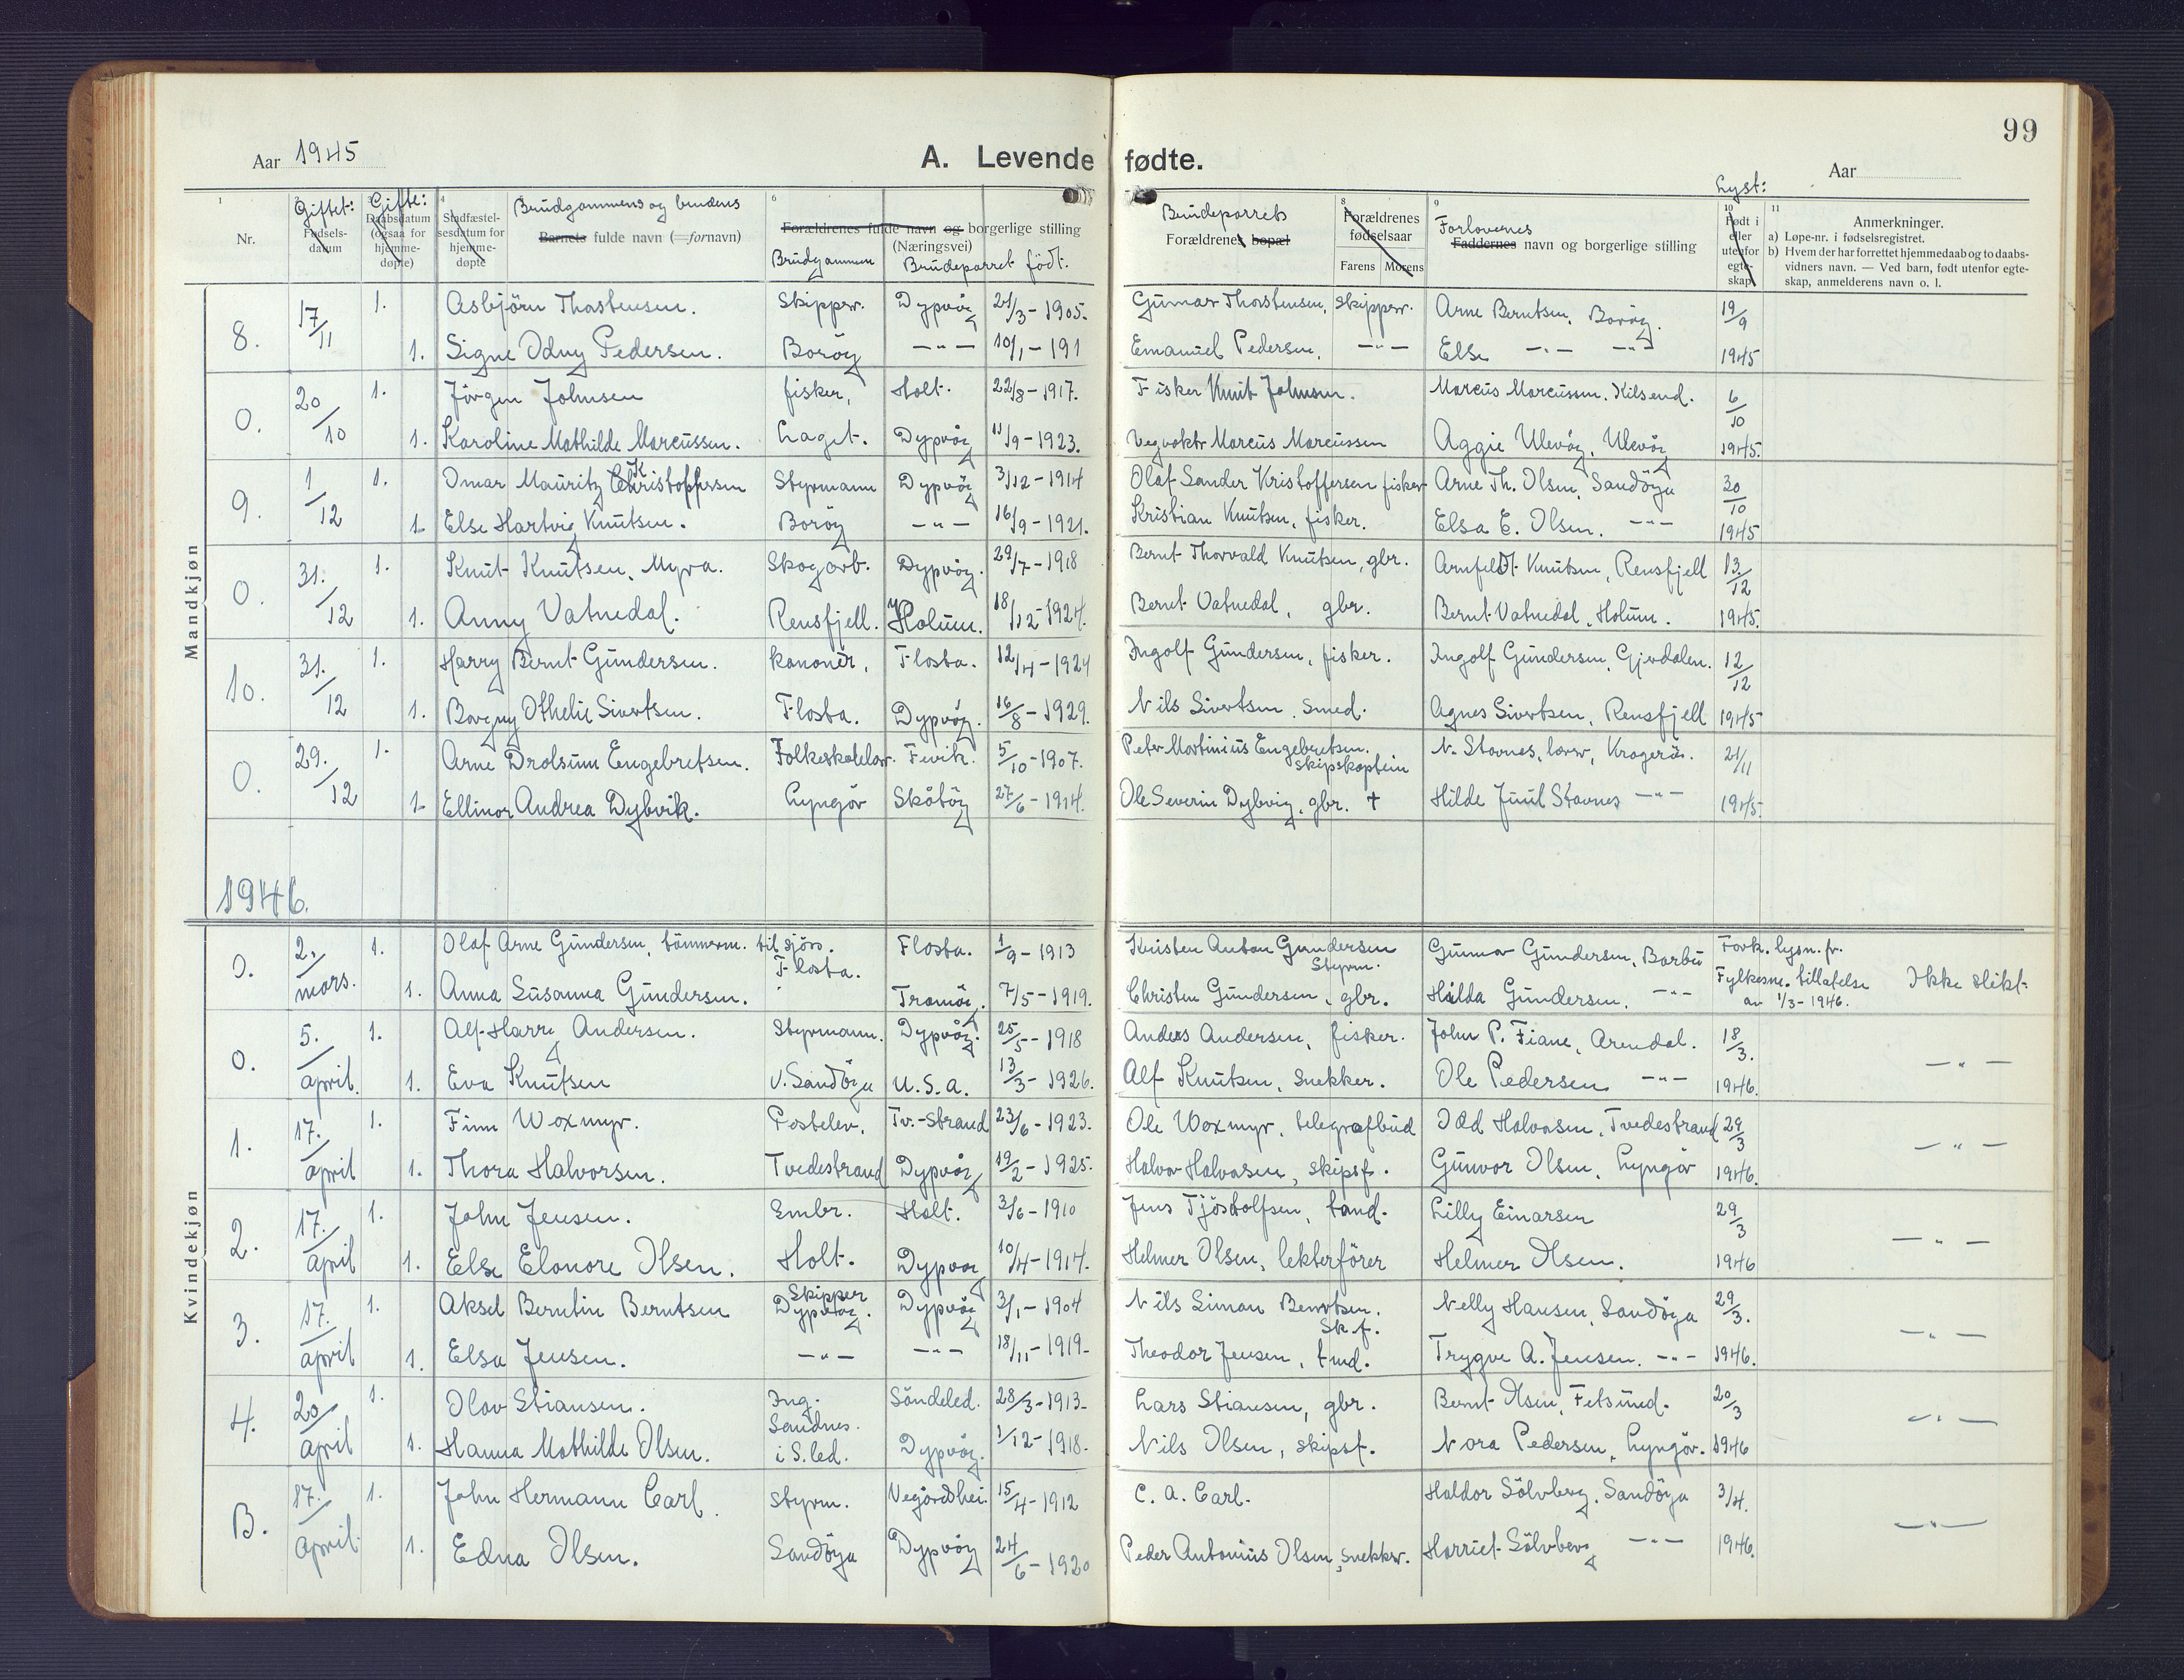 99
Aar 1945 A. Levende fødte. Aar
1 Nr.
2 Giftet: Fødsels-datum
3 Gifte: Daabsdatum (ogsaa for hjemme-døpte)
4 Stadfæstel-sesdatum for hjemme-døpte
Brudgommens og brudens
Barnets fulde navn (=fornavn)
6 Forældrenes fulde navn og borgerlige stilling
(Næringsvei)
Brudgommen Brudeparret født.
Brudeparrets
Forældrenes bopæl
8 Forældrenes fødselsaar
Farens Morens
9 Forlovernes
Faddernes navn og borgerlige stilling
Lyst:
10 Født i eller utenfor egte-skap
11 Anmerkninger.
a) Løpe-nr. i fødselsregistret.
b) Hvem der har forrettet hjemmedaab og to daabs-
vidners navn. — Ved barn, født utenfor egte-
skap, anmelderens navn o. l.
Mandkjøn
8. 17/11 1. Asbjörn Thorstensen. Skipper. Dypvåg 21/3-1905. Gunnar Thorstensen, skipper. Arne Berntsen, Borøy. 19/9
1. Signe Odny Pedersen. Borøy —"— 10/1-191 Emanuel Pedersen, —"— Else —"— —"— 1945
0. 20/10 1. Jörgen Johnsen fisker, Holt. 22/8-1917. Fisker Knut Johnsen. Marcus Marcussen, Kilsund. 6/10
1. Karoline Mathilde Marcussen. Laget. Dypvåg 11/9-1923. Vegvokter Marcus Marcussen Aggie Ulevåg, Ulevåg 1945.
9. 1/12 1. Omar Mauritz Kristoffersen Styrmann Dypvåg 3/12-1914 Olaf Sander Kristoffersen fisker Arne Th. Olsen, Sandöya 30/10
1. Else Hartvig Knutsen. Borøy —"— 16/9-1921. Kristian Knutsen, fisker. Elsa E. Olsen. —"— 1945
0. 31./12 1. Knut Knutsen, Myra. Skogarb. Dypvåg. 29/7-1918 Bernt Thorvald Knutsen, gbr. Arnfeldt Knutsen, Rensfjell 13/12
1. Anny Vatnedal. Rensfjell. Holum. 18/12-1924. Bernt Vatnedal, gbr. Bernt Vatnedal, Holum. 1945.
10. 31./12 1. Harry Bernt Gundersen. Kanonér, Flosta. 12/4-1924 Ingolf Gundersen, fisker. Ingolf Gundersen, Gjerdalen. 12/12
1. Borgny Othelie Sivertsen. Flosta. Dypvåg. 16/8-1929. Nils Sivertsen, smed. Agnes Sivertsen, Rensfjell 1945
0. 29./12 1. Arne Drolsum Engebretsen. Folkeskolelær. Fevik. 5/10-1907. Peter Martinius Engebretsen. skipskaptein N. Stavnes, lærer, Kragerö. 21/11
1. Ellinor Andrea Dybvik. Lyngör Skåtöy 27/6-1914. Ole Severin Dybvig, gbr. † Hilde Juul Stavnes —"— 1945.
1946.
Kvindekjøn
0. 2./mars. 1. Olaf Arne Gundersen, tömmerm. til sjös. Flosta. Flosta. 1/9-1913 Kristen Anton Gundersen Styrm. Gunnar Gundersen, Barbu Fork. lysn. fr.
1. Anna Susanna Gundersen. Tromöy. 7/5-1919. Christen Gundersen, gbr. Hilda Gundersen. —"— Fylkesm. tillatelse av 1/3-1946. Ikke slekt.
0. 5./april. 1. Alf Harry Andersen. Styrmann. Dypvåg. 25/5-1918 Anders Andersen, fisker. John P. Fiane, Arendal. 18/3. —"—
1. Eva Knutsen V. Sandöya U.S.A. 13/3-1926. Alf Knutsen, snekker. Ole Pedersen —"— 1946.
1. 17./april 1. Finn Woxmyr. Postelev. Tv.-Strand 23/6-1923. Ole Woxmyr, telegrafbud Odd Halvorsen, Tvedestrand 29/3 —"—
1. Thora Halvorsen. Tvedestrand Dypvåg 19/2-1925. Halvor Halvorsen, skipsf. Gunvor Olsen, Lyngör 1946.
2. 17./april 1. John Jensen. Embr. Holt. 3/6-1910 Jens Tjöstolfsen, tømd. Lilly Einarsen 29/3 —"—
1. Else Elonore Olsen. Holt. Dypvåg 10/4-1914. Helmer Olsen, lekterförer Helmer Olsen. 1946
3. 17./april 1. Aksel Berntin Berntsen Skipper Dypvåg. Dypvåg 3/1-1904 Nils Simon Berntsen. Sk.f. Nelly Hansen, Sandöya 29/3. —"—
1. Elsa Jensen. —"— —"— 18/11-1919- Theodor Jensen, tmd. Trygve A. Jensen. —"— 1946.
4. 20/april 1. Olav Stiansen. Ing. Sandnes. Söndeled. 28/3-1913- Lars Stiansen, gbr. Bernt Olsen, Fetsund. 20/3 —"—
1. Hanna Mathilde Olsen. i S.led. Dypvåg. 1/12-1918. Nils Olsen, skipsf. Nora Pedersen, Lyngör. 1946
B. 17./april. 1. John Hermann Carl. Styrm. Vegårdshei. 15/4-1912 C. A. Carl. Haldor Sölvberg, Sandöya 3/4. —"—
1. Edna Olsen. Sandöya Dypvåg 24/6-1920 Peder Antonius Olsen, snekker. Harriet Sölvberg —"— 1946.